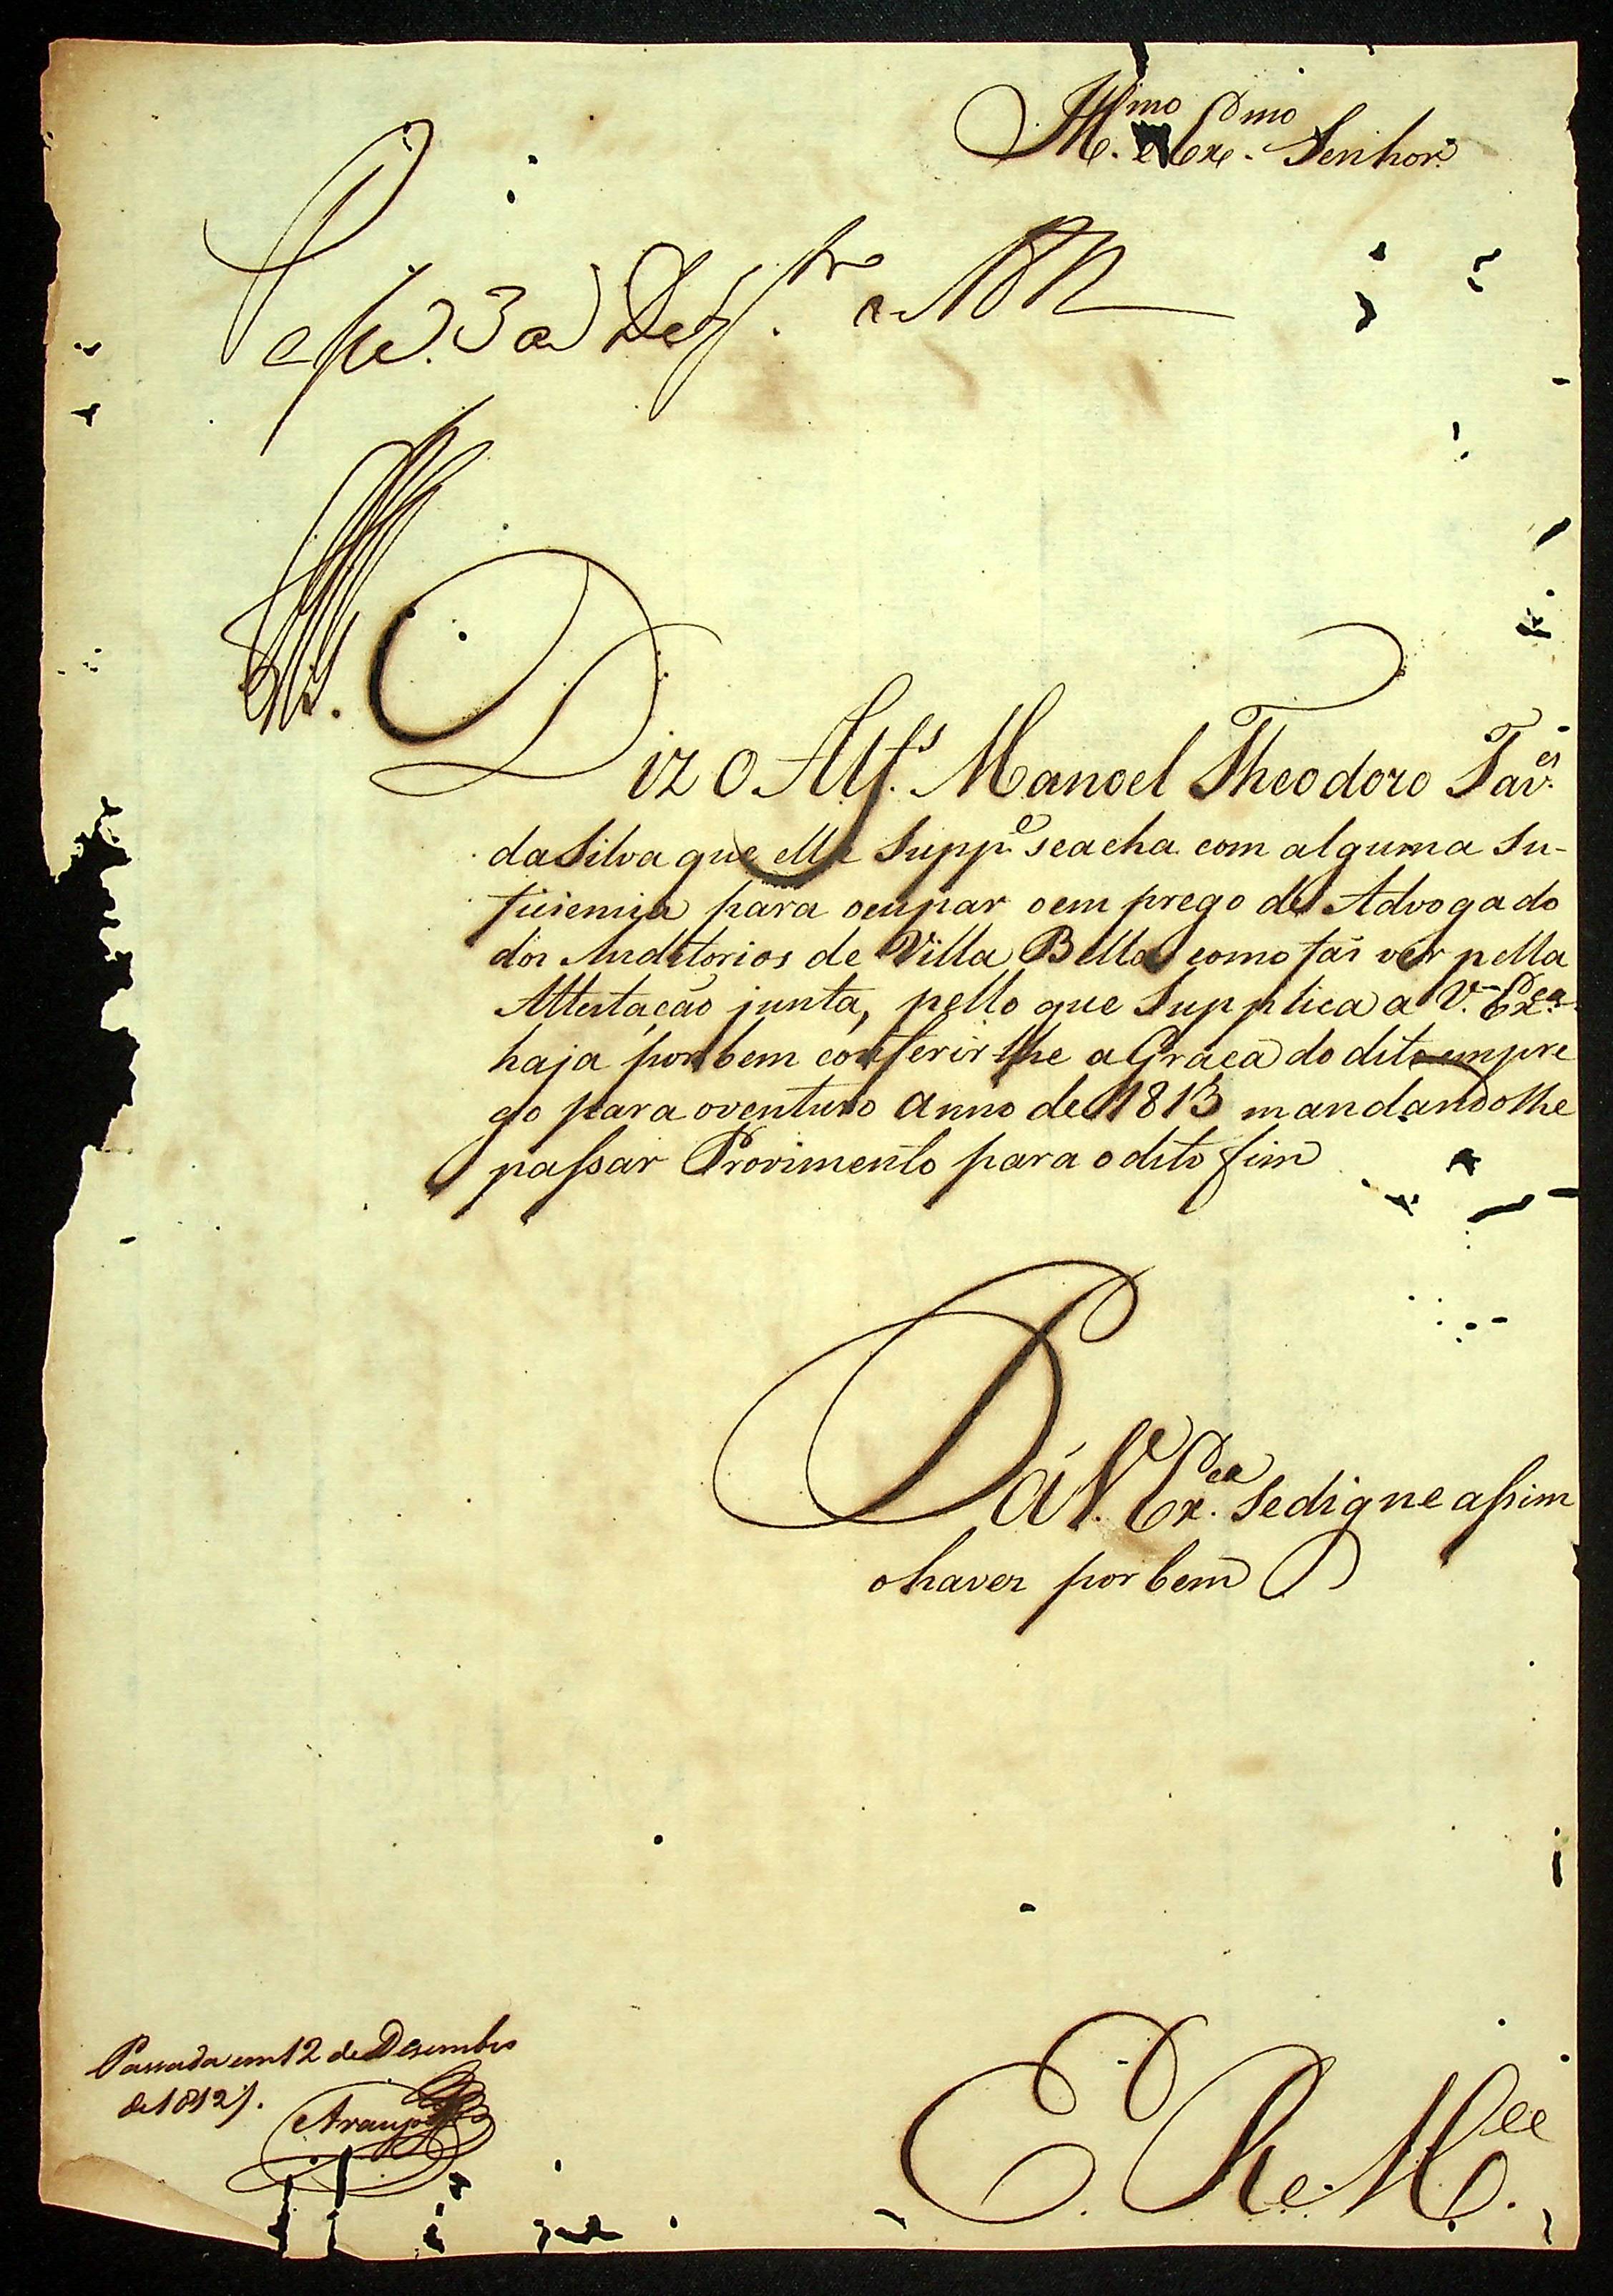 Ill.mo e Ex.mo Senhor
3 de Dez.bro
Diz o Alf.s Manoel Theodoro Tav.es
da Silva que elle Supp.e se acha com alguma Su-
ficiencia para ocupar o em prego de Advogado
dos Auditorios de Villa Bella como fas ver pella
Attestação junta, pello que Supplica a V. Ex.ca
haja por bem conferir lhe a Graca do dito empre
go para o venturo anno de 1813 mandandolhe
passar Provimento para o dito fim
P. a V. Ex.ca Se digne assim
o haver por bem
Passada em 12 de Desembro
de 1812.
Araujo
E. R. M.ce